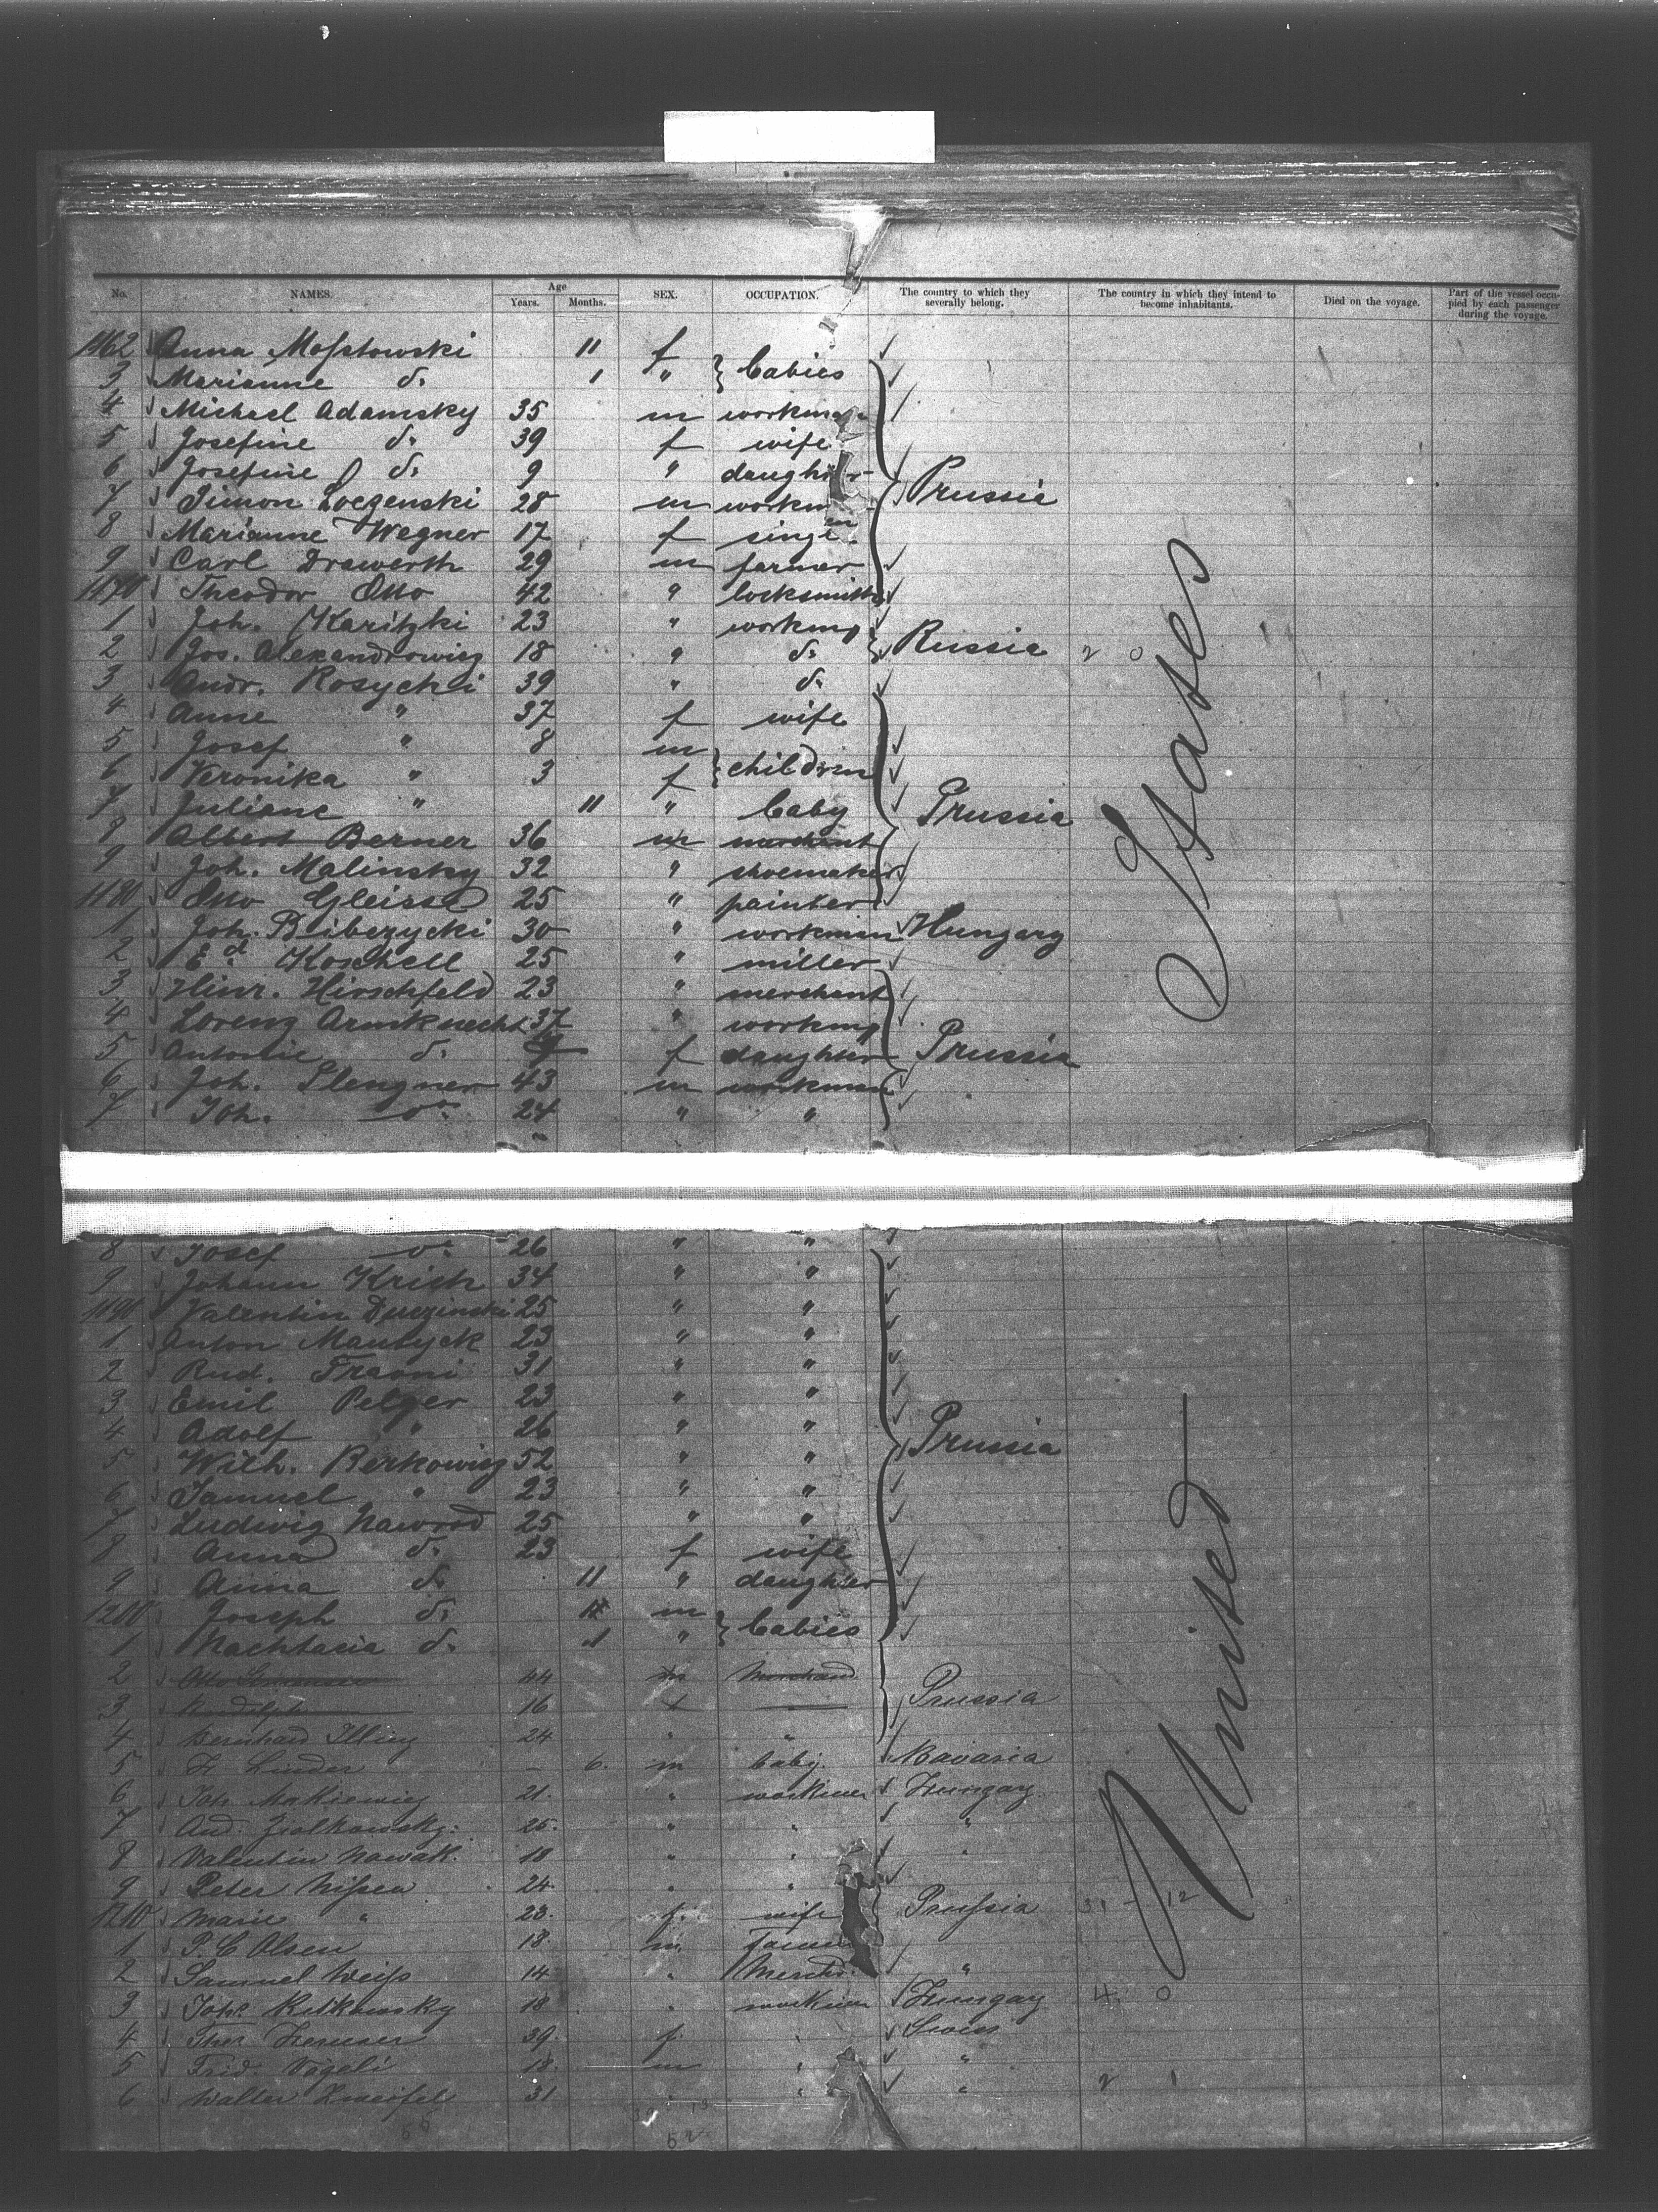 No. NAMES. Age Years. Months. SEX. OCCUPATION. The country to which they severally belong. The country in which they intend to become inhabitants. Died on the voyage. Part of the vessel occupied by each passenger during the voyage.
1162 Anna Moſstowski 11 f
3 Marianne do 1 " } babies
4 Michael Adamsky 35 m workman
5 Josefine do 39 f wife
6 Josefine do 9 " daughter
7 Simon Loczenski 28 m workm Prussia
8 Marianne Wegner 17 f
9 Carl Drewerth 29 m farmer
1170 Theodor Otto 42 " locksmith
1 Joh. Karitzki 23 " workmn
2 Jos. Alexandrowicz 18 " do Russia 2 0
3 Andr. Rosycki 39 " do
4 Anne " 37 f wife
5 Josef " 8 m
6 Veronika " 3 f } children
7 Juliane " 11 " baby Prussia
8 Albert Berner 36 m merchant
9 Joh. Malinsky 32 " shoemaker
1180 Otto Gleisse 25 " painter
1 Joh. Bibezycki 30 " workmen Hungary
2 Ed Koschell 25 " miller
3 Hinr. Hirschfeld 23 " merchant
4 Lorenz Armknecht 37 " workmn
5 Antonie do 9 f daughter Prussia
6 Joh. Plengner 43 m workman
7 Joh. do 24 " "
8 Josef do 26 " "
9 Johann Krish 34 " "
1190 Valentin 25 " "
1 Anton Maubyck 23 " "
2 Rud. 31 " "
3 Emil Pelzer 23 " "
4 Adolf " 26 " "
5 Wilh. Berkowicz 52 " " Prussia
6 Samuel " 23 " "
7 Ludwig Nawrod 25 " "
8 Anna do 23 f wife
9 Anna do 11 " daughter
1200 Joseph do m
1 do 1 " } babies
2 Otto 44 m Merchand
3 Rudolph 16 Prussia
4 Bernhard Illing 24 " "
5 Fr Linder – 6. m baby. Bavaria
6 Joh Makiewicz 21. " workmen Hungary
7 And. Ziolkowsky. 25. " " "
8 Valentin Nawak. 18 " " "
9 Peter Niſsen 24. " "
1210 Marie " 23. f. wife Pruſsia 31 – 12
1 P. C Olsen 18. m. Farmer
2 Samuel Weiſs 14 " Merchd. "
3 Johs Ritkowsky 18 " workmen Hungary 4. 0
4 Ther 39. f. " Swiss
5 Frid. Vögeli 18. m " "
6 Walter Zweifel 31 " " " 2 1
52
United States